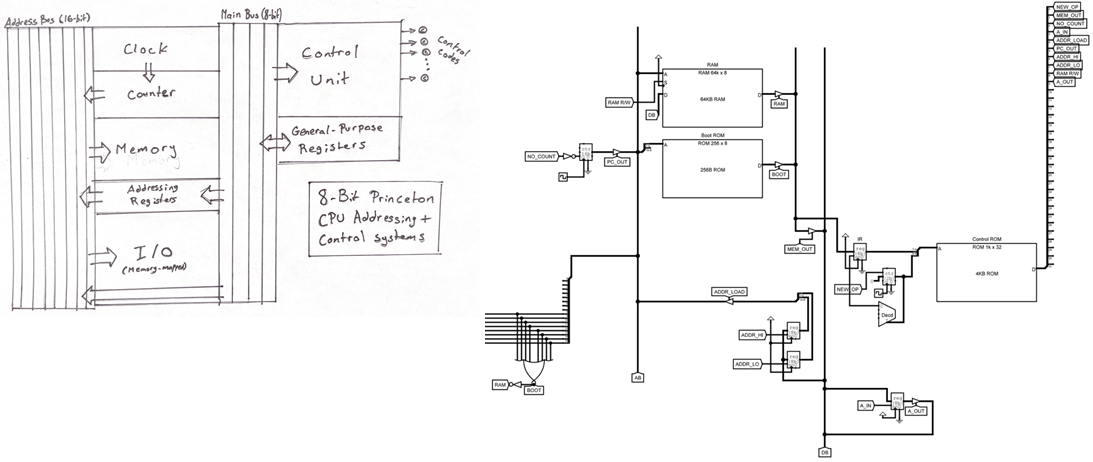 Address Bus (16-bit)
Main Bus (8-bit)
Clock
Counter
Memory
Addressing
Registers
I/O
(Memory-mapped)
Control
Unit
Control
Codes
General-Purpose
Registers
8-Bit Princeton
CPU Addressing +
Control systems
NEW_OP
MEM_OUT
NO_COUNT
A_IN
ADDR_LOAD
PC_OUT
ADDR_HI
ADDR_LO
RAM R/W
A_OUT
RAM
RAM 64k x 8
A
S
D
D
64KB RAM
RAM R/W
DB
RAM
Boot ROM
ROM 256 x 8
A
D
256B ROM
BOOT
NO_COUNT
PC_OUT
MEM_OUT
IR
Control ROM
ROM 1k x 32
A
D
4KB ROM
NEW_OP
Decd
ADDR_LOAD
ADDR_HI
ADDR_LO
RAM
BOOT
AB
A_IN
A_OUT
DB